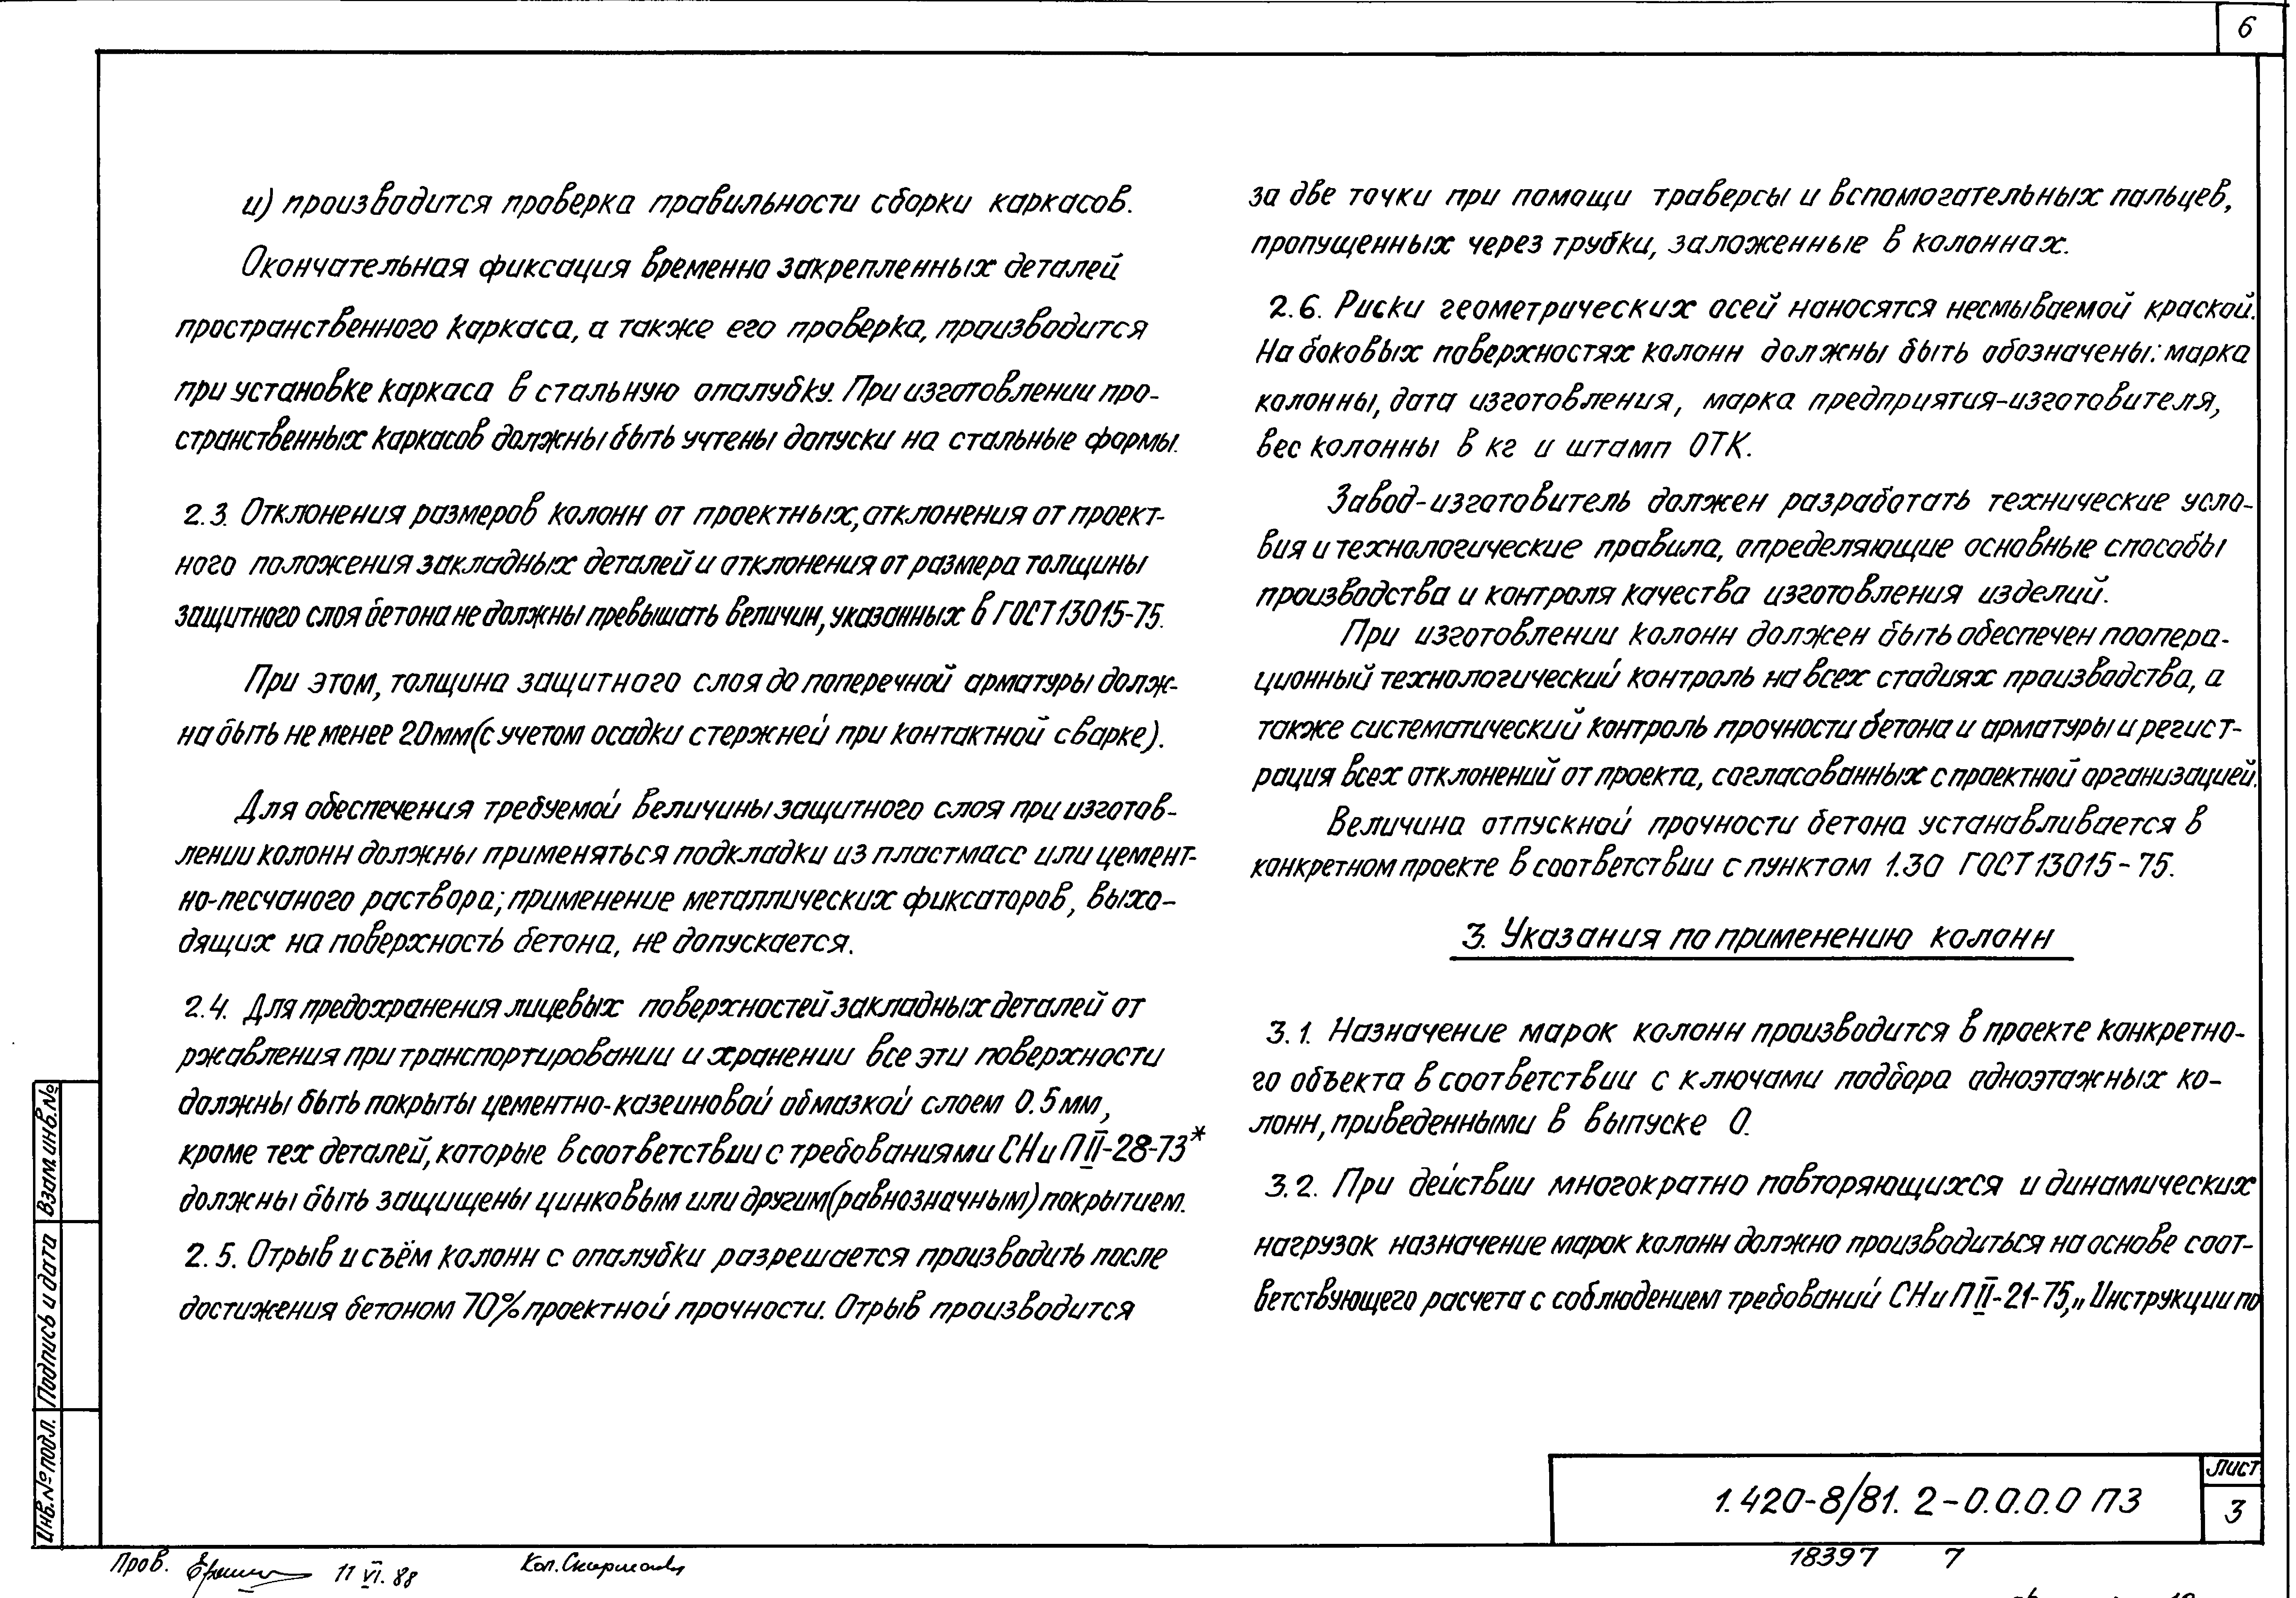 6
и) производится проверка правильности сборки каркасов.
Окончательная фиксация временно закрепленных деталей
пространственного каркаса, а также его проверка, производится
при установке каркаса в стальную опалубку. При изготовлении про-
странственных каркасов должны быть учтены допуски на стальные формы.
2.3. Отклонения размеров колонн от проектных, отклонения от проект-
ного положения закладных деталей и отклонения от размера толщины
защитного слоя бетона не должны превышать величин, указанных в ГОСТ 13015-75.
При этом, толщина защитного слоя до поперечной арматуры долж-
на быть не менее 20мм (с учетом осадки стержней при контактной сварке).
Для обеспечения требуемой величины защитного слоя при изготов-
лении колонн должны применяться подкладки из пластмасс или цемент-
но-песчаного раствора; применение металлических фиксаторов, выхо-
дящих на поверхность бетона, не допускается.
2.4. Для предохранения лицевых поверхностей закладных деталей от
ржавления при транспортировании и хранении все эти поверхности
должны быть покрыты цементно-казеиновой обмазкой слоем 0.5 мм,
кроме тех деталей, которые в соответствии с требованиями СНиП II-28-73*
должны быть защищены цинковым или другим (равнозначным) покрытием.
2.5. Отрыв и съём колонн с опалубки разрешается производить после
достижения бетоном 70% проектной прочности. Отрыв производится
за две точки при помощи траверсы и вспомогательных пальцев,
пропущенных через трубки, заложенные в колоннах.
2.6. Риски геометрических осей наносятся несмываемой краской.
На боковых поверхностях колонн должны быть обозначены: марка
колонны, дата изготовления, марка предприятия-изготовителя,
вес колонны в кг и штамп ОТК.
Завод-изготовитель должен разработать технические усло-
вия и технологические правила, определяющие основные способы
производства и контроля качества изготовления изделий.
При изготовлении колонн должен быть обеспечен поопера-
ционный технологический контроль на всех стадиях производства, а
также систематический контроль прочности бетона и арматуры и регист-
рация всех отклонений от проекта, согласованных с проектной организацией.
Величина отпускной прочности бетона устанавливается в
конкретном проекте в соответствии с пунктом 1.30 ГОСТ 13015-75.
3. Указания по применению колонн
3.1. Назначение марок колонн производится в проекте конкретно-
го объекта в соответствии с ключами подбора одноэтажных ко-
лонн, приведенными в выпуске 0.
3.2. При действии многократно повторяющихся и динамических
нагрузок назначение марок колонн должно производиться на основе соот-
ветствующего расчета с соблюдением требований СНиП II-21-75, „Инструкции по
Взам. инв. №
Подпись и дата
Инв. № подл.
1.420-8/81. 2-0.0.0.0 ПЗ
Лист
3
Пров. 11 VI. 88
Коп.
18397 7